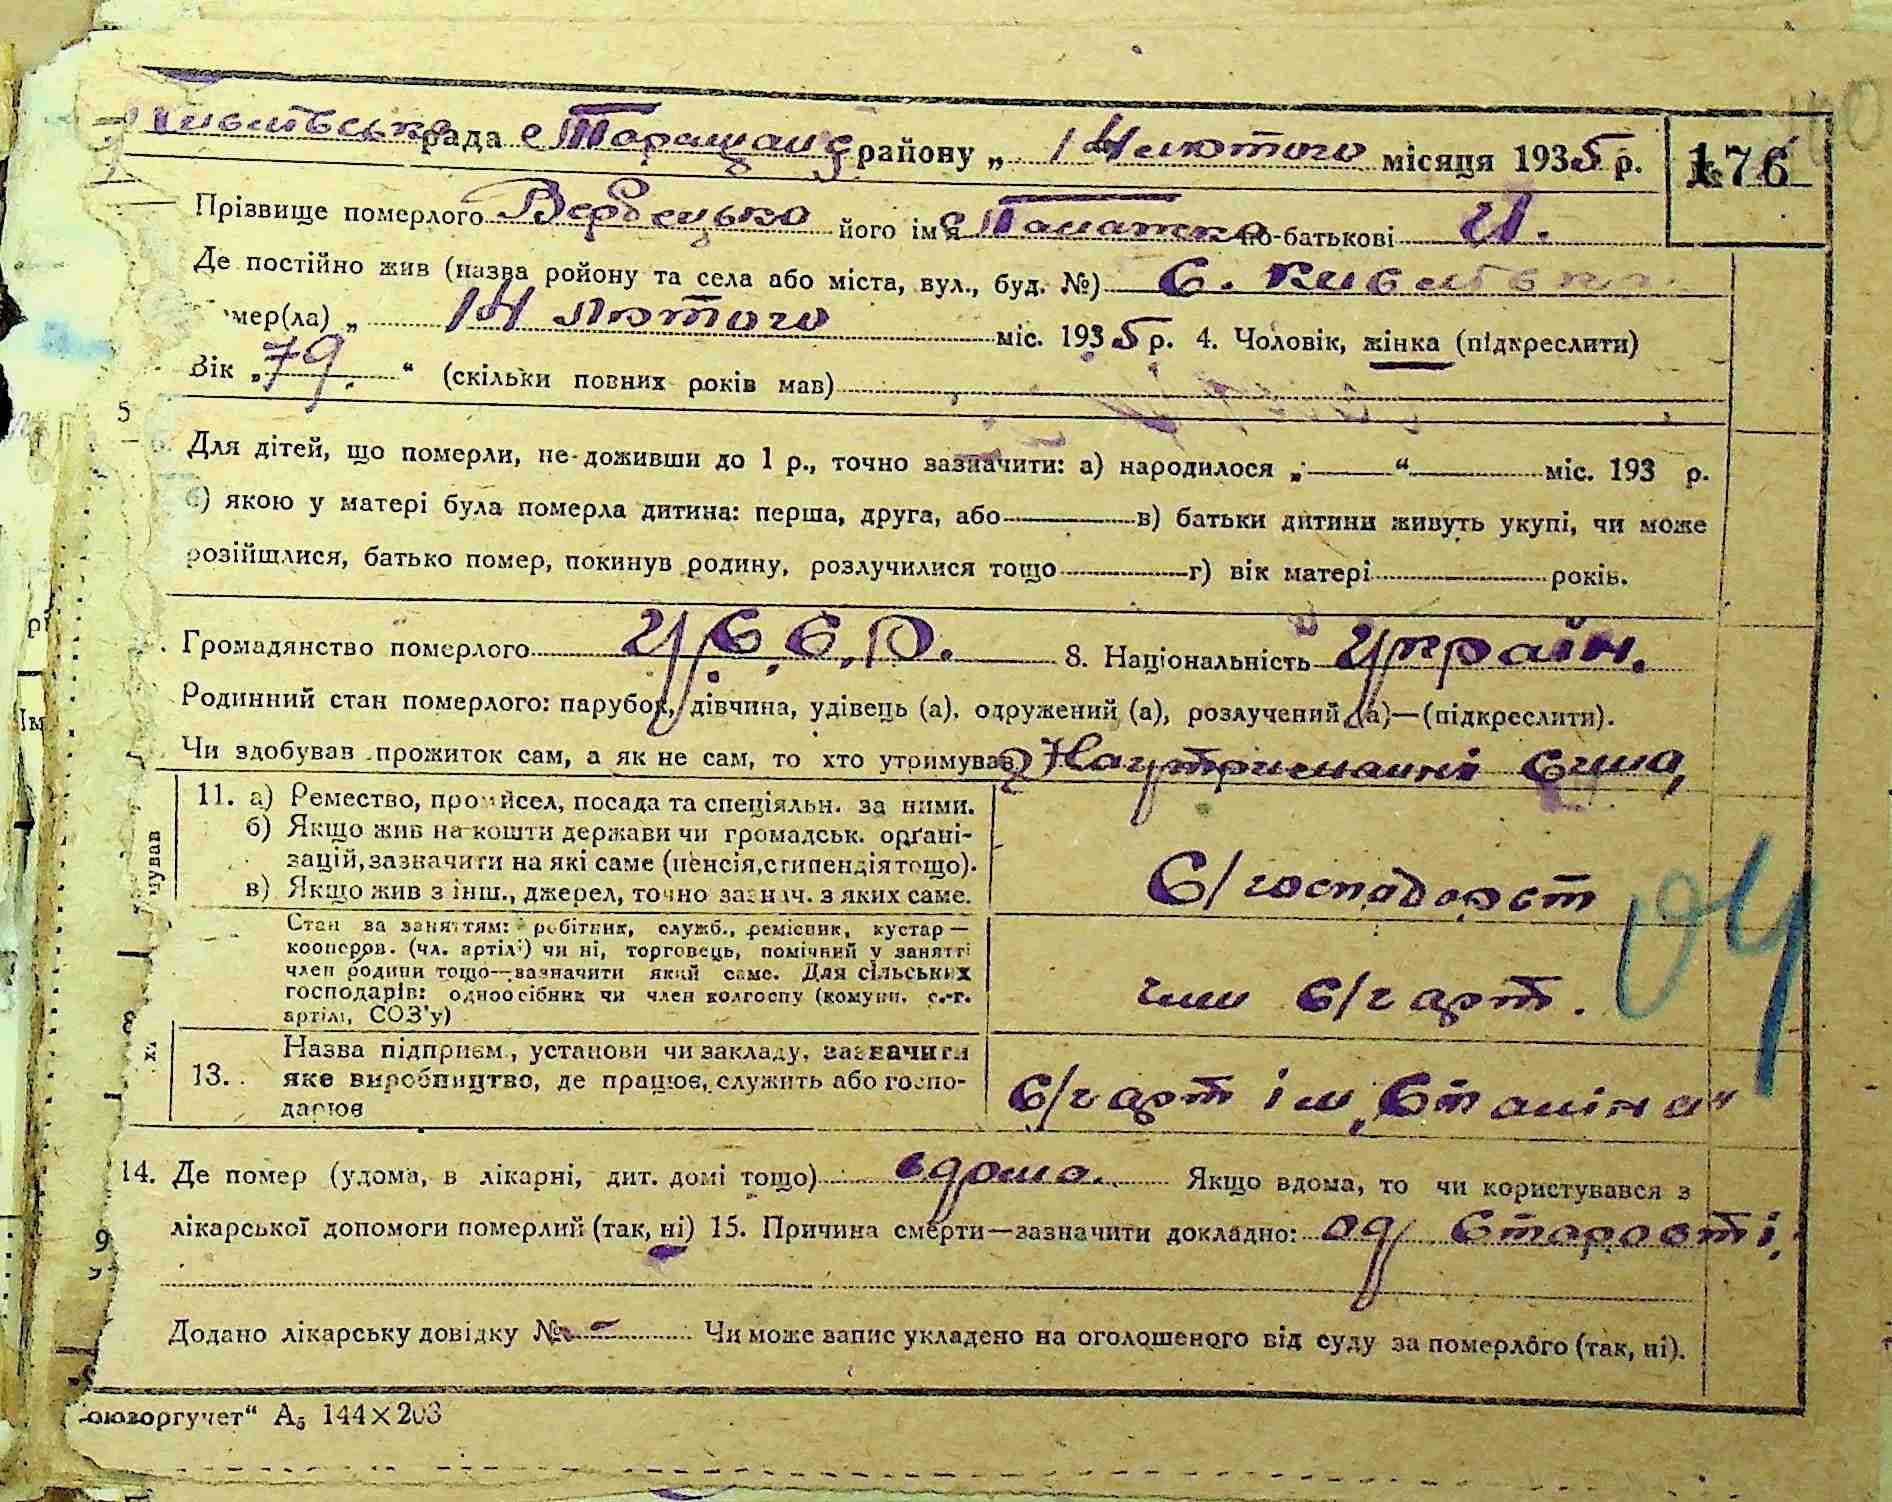 рада Таращанс району „ 14 лютого місяця 1935 р. 176
Прізвище померлого Вербецька його ім'я по-батькові И.
Де постійно жив (назва ройону та села або міста, вул., буд. №) С. Кившівка
мер(ла) „ 14 лютого міс. 1935 р. 4. Чоловік, жінка (підкреслити)
Вік „ 79. “ (скільки повних років мав)
5
Для дітей, що померли, не-доживши до 1 р., точно зазначити: а) народилося „ — “ міс. 193 р.
б) якою у матері була померла дитина: перша, друга, або в) батьки дитини живуть укупі, чи може
розійшлися, батько помер, покинув родину, розлучилися тощо г) вік матері років.
Громадянство померлого У.С.С.Р. 8. Національність Україн.
Родинний стан померлого: парубок, дівчина, удівець (а), одружений (а), розлучений (а)—(підкреслити).
Чи здобував прожиток сам, а як не сам, то хто утримував На утриманні сина,
11. а) Ремество, промисел, посада та спеціяльн. за ними.
б) Якщо жив на кошти держави чи громадськ. орґані-
зацій, зазначити на які саме (пенсія, стипендія тощо).
в) Якщо жив з інш., джерел, точно зазнач. з яких саме.
С/господарст
Стан за заняттям: робітник, служб., ремісник, кустар—
кооперов. (чл. артілі) чи ні, торговець, помічний у занятті
член родини тощо—зазначити який саме. Для сільських
господарів: одноосібник чи член колгоспу (комуни, с.-г.
артілі, СОЗ'у)
член с/г арт.
04
13. Назва підприєм., установи чи закладу, зазначити
яке виробництво, де працює, служить або госпо-
дарює
С/г арт ім „Сталіна“
14. Де помер (удома, в лікарні, дит. домі тощо) вдома. Якщо вдома, то чи користувався з
лікарської допомоги померлий (так, ні) 15. Причина смерти—зазначити докладно: од старости,
Додано лікарську довідку № — Чи може запис укладено на оголошеного від суду за померлого (так, ні).
оюзоргучет“ А₅ 144×203